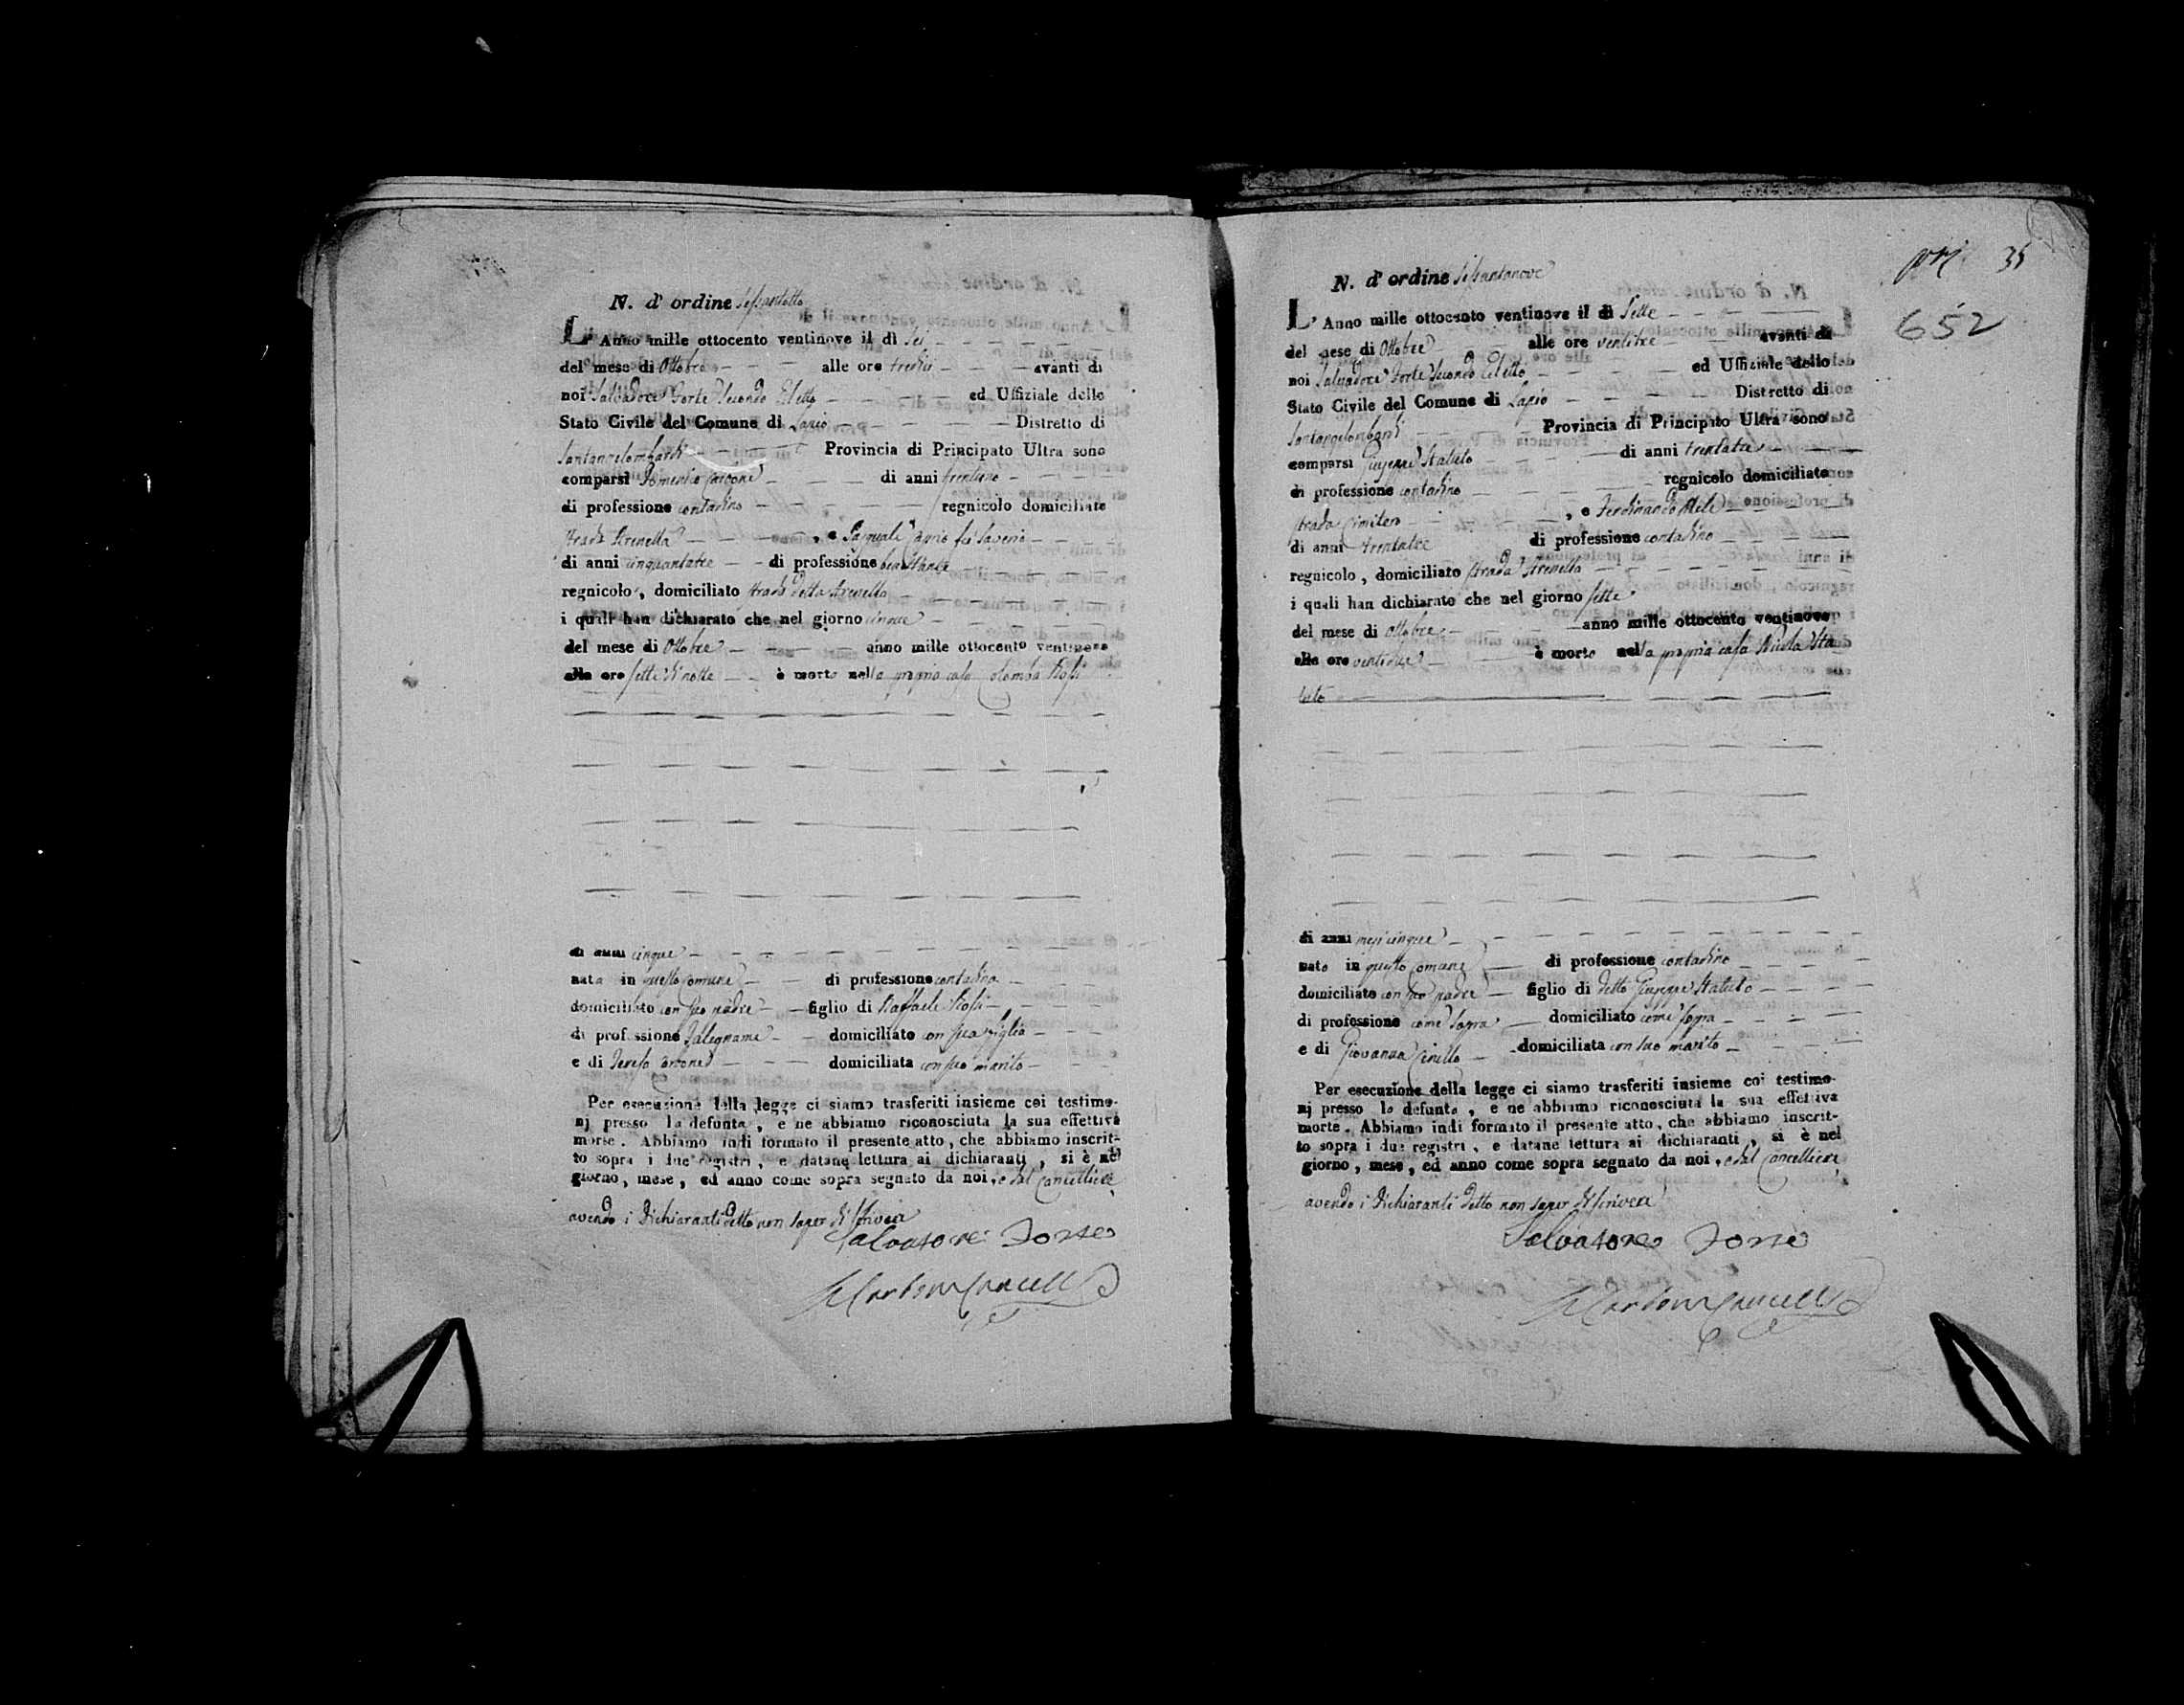 N. d' ordine sessantotto
L' Anno mille ottocento ventinove il dì sei
del mese di Ottobre alle ore tredici avanti di
noi Salvadore Forte Secondo Eletto ed Uffiziale dello
Stato Civile del Comune di Lapio Distretto di
Santangelombardi Provincia di Principato Ultra sono
comparsi Domenico Carbone di anni trentuno
di professione contadino regnicolo domiciliato
strada Arenella , e Pasquale fu Saverio
di anni cinquantatre di professione
regnicolo , domiciliato strada detta Arenella
i quali han dichiarato che nel giorno cinque
del mese di Ottobre anno mille ottocento ventinove
alle ore sette di notte è morta nella propria casa Colomba Rossi
di anni cinque
nata in questo comune di professione contadina
domiciliato con suo padre figlio di Raffaele Rossi
di professione Falegname domiciliato con sua figlia
e di Teresa Carbone domiciliata con suo marito
Per esecuzione della legge ci siamo trasferiti insieme coi testimo-
nj presso la defunta , e ne abbiamo riconosciuta la sua effettiva
morte . Abbiamo indi formato il presente atto , che abbiamo inscrit-
to sopra i due registri , e datane lettura ai dichiaranti , si è nel
giorno , mese , ed anno come sopra segnato da noi , e dal Cancelliere
avendo i dichiaranti detto non saper di scrivere
Salvatore Forte
35
652
N. d' ordine sessantanove
L' Anno mille ottocento ventinove il dì sette
del mese di Ottobre alle ore ventitre avanti di
noi Salvadore Forte Secondo Eletto ed Uffiziale dello
Stato Civile del Comune di Lapio Distretto di
Santangelombardi Provincia di Principato Ultra sono
comparsi Giuseppe Statuto di anni trentatre
di professione contadino regnicolo domiciliato
strada Cimitero , e Ferdinando Mele
di anni trentatre di professione contadino
regnicolo , domiciliato strada Arenella
i quali han dichiarato che nel giorno sette
del mese di ottobre anno mille ottocento ventinove
alle ore ventidue è morto nella propria casa Nicola Sta-
tuto
di anni mesi cinque
nato in questo comune di professione contadino
domiciliato con suo padre figlio di detto Giuseppe Statuto
di professione come sopra domiciliato come sopra
e di Giovanna Cirillo domiciliata con suo marito
Per esecuzione della legge ci siamo trasferiti insieme coi testimo-
nj presso lo defunto , e ne abbiamo riconosciuta la sua effettiva
morte . Abbiamo indi formato il presente atto , che abbiamo inscrit-
to sopra i due registri , e datane lettura ai dichiaranti , si è nel
giorno , mese , ed anno come sopra segnato da noi , e dal Cancelliere
avendo i dichiaranti detto non saper di scrivere
Salvatore Forte